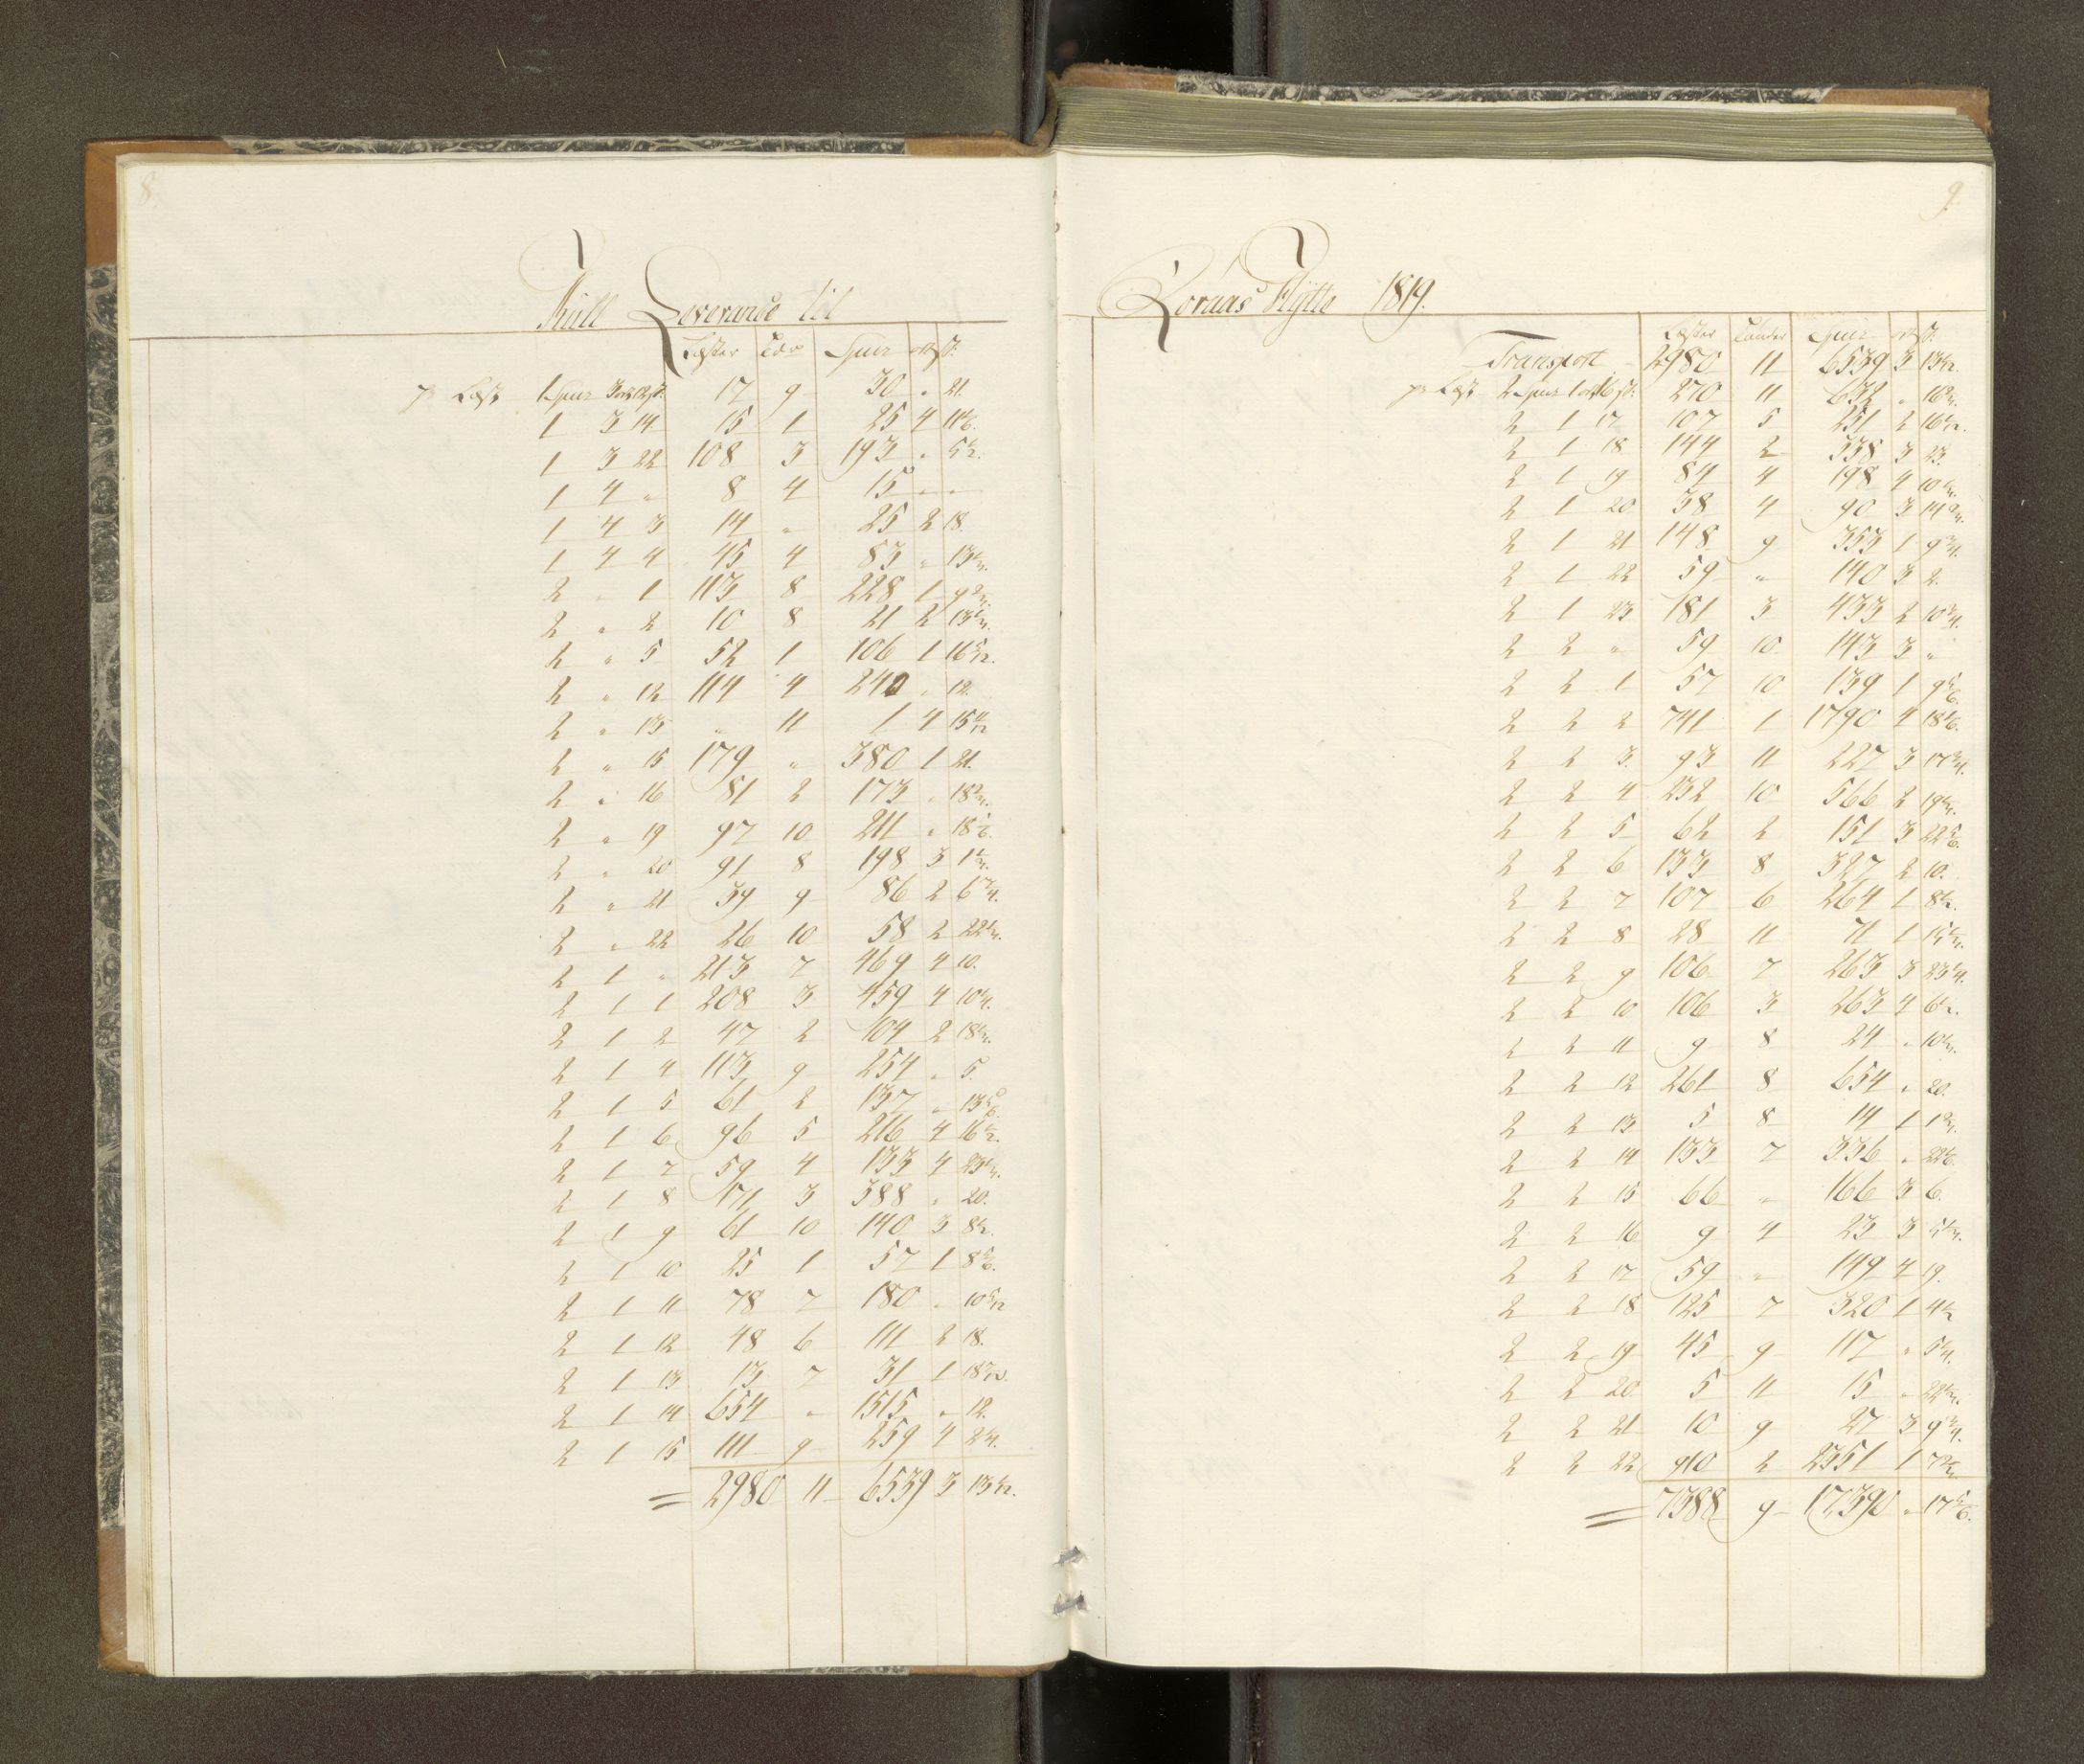 8.
Kull Leverance til
Læster Tdr Spdr ort ß.
pr Læst 1 Spdr 3 ort 12 ß. 17 9 30 " 21.
1 3 14 15 1 25 4 11 1/6.
1 3 22 108 3 193 " 5 1/2.
1 4 " 8 4 15 " "
1 4 3 14 " 25 2 18.
1 4 4 45 4 83 " 13 1/3.
2 " 1 113 8 228 1
2 " 2 10 8 21 2 13 1/3.
2 " 5 52 1 106 1 16 5/12.
2 " 12 114 4 240 " 12.
2 " 13 " 11 1 4 15 11/12
2 " 15 179 " 380 1 21.
2 " 16 81 2 173 " 18 2/3.
2 " 19 97 10 211 " 18 5/6.
2 " 20 91 8 198 3 1 1/3.
2 " 21 39 9 86 2 6 3/4.
2 " 22 26 10 58 2 22 1/3.
2 1 " 213 7 469 4 10.
2 1 1 208 3 459 4 10 1/4.
2 1 2 47 2 104 2 18 1/3.
2 1 4 113 9 254 " 5.
2 1 5 61 2 137 " 13 5/6.
2 1 6 96 5 216 4 16 1/2.
2 1 7 59 4 133 4 23 1/3.
2 1 8 171 3 388 " 20.
2 1 9 61 10 140 3 8 1/2.
2 1 10 25 1 57 1 8 5/6.
2 1 11 78 7 180 " 10 5/12
2 1 12 48 6 111 2 18.
2 1 13 13 7 31 1 18 7/12.
2 1 14 654 " 1515 " 12.
2 1 15 111 9 259 4 2 1/4.
= 2980 11 6539 3 13 1/12.
9.
Røraas Hytte 1819.
Læster Tønder Spdr ort ß.
Transport 2980 11 6539 3 13 1/12.
pr Læst 2 Spdr 1 ort 16 ß. 270 11 632 " 16 2/3.
2 1 17 107 5 251 2 16 1/12.
2 1 18 144 2 338 3 23.
2 1 19 84 4 198 4 10 1/3.
2 1 20 38 4 90 3 14 2/3.
2 1 21 148 9 353 1 9 3/4.
2 1 22 59 " 140 3 2.
2 1 23 181 3 433 2 10 3/4.
2 2 " 59 10 143 3 "
2 2 1 57 10 139 1 9 5/6.
2 2 2 741 1 1790 4 18 1/6.
2 2 3 93 11 227 3 17 3/4.
2 2 4 232 10 566 2 19 1/3.
2 2 5 62 2 151 3 22 5/6.
2 2 6 133 8 327 2 10.
2 2 7 107 6 264 1 8 1/2.
2 2 8 28 11 71 1 15 1/3.
2 2 9 106 7 263 3 23 1/4.
2 2 10 106 3 263 4 6 1/2.
2 2 11 9 8 24 " 10 1/3.
2 2 12 261 8 654 " 20.
2 2 13 5 8 14 1 1 2/3.
2 2 14 133 7 336 " 22 1/6.
2 2 15 66 " 166 3 6.
2 2 16 9 4 23 3 5 1/3.
2 2 17 59 " 149 4 19.
2 2 18 125 7 320 1 4 1/2
2 2 19 45 9 117 " 5 1/4.
2 2 20 5 11 15 " 22 1/3.
2 2 21 10 9 27 3 9 3/4.
2 2 22 910 2 2351 1 7 2/3
= 7388 9 17,390 " 17 5/6.